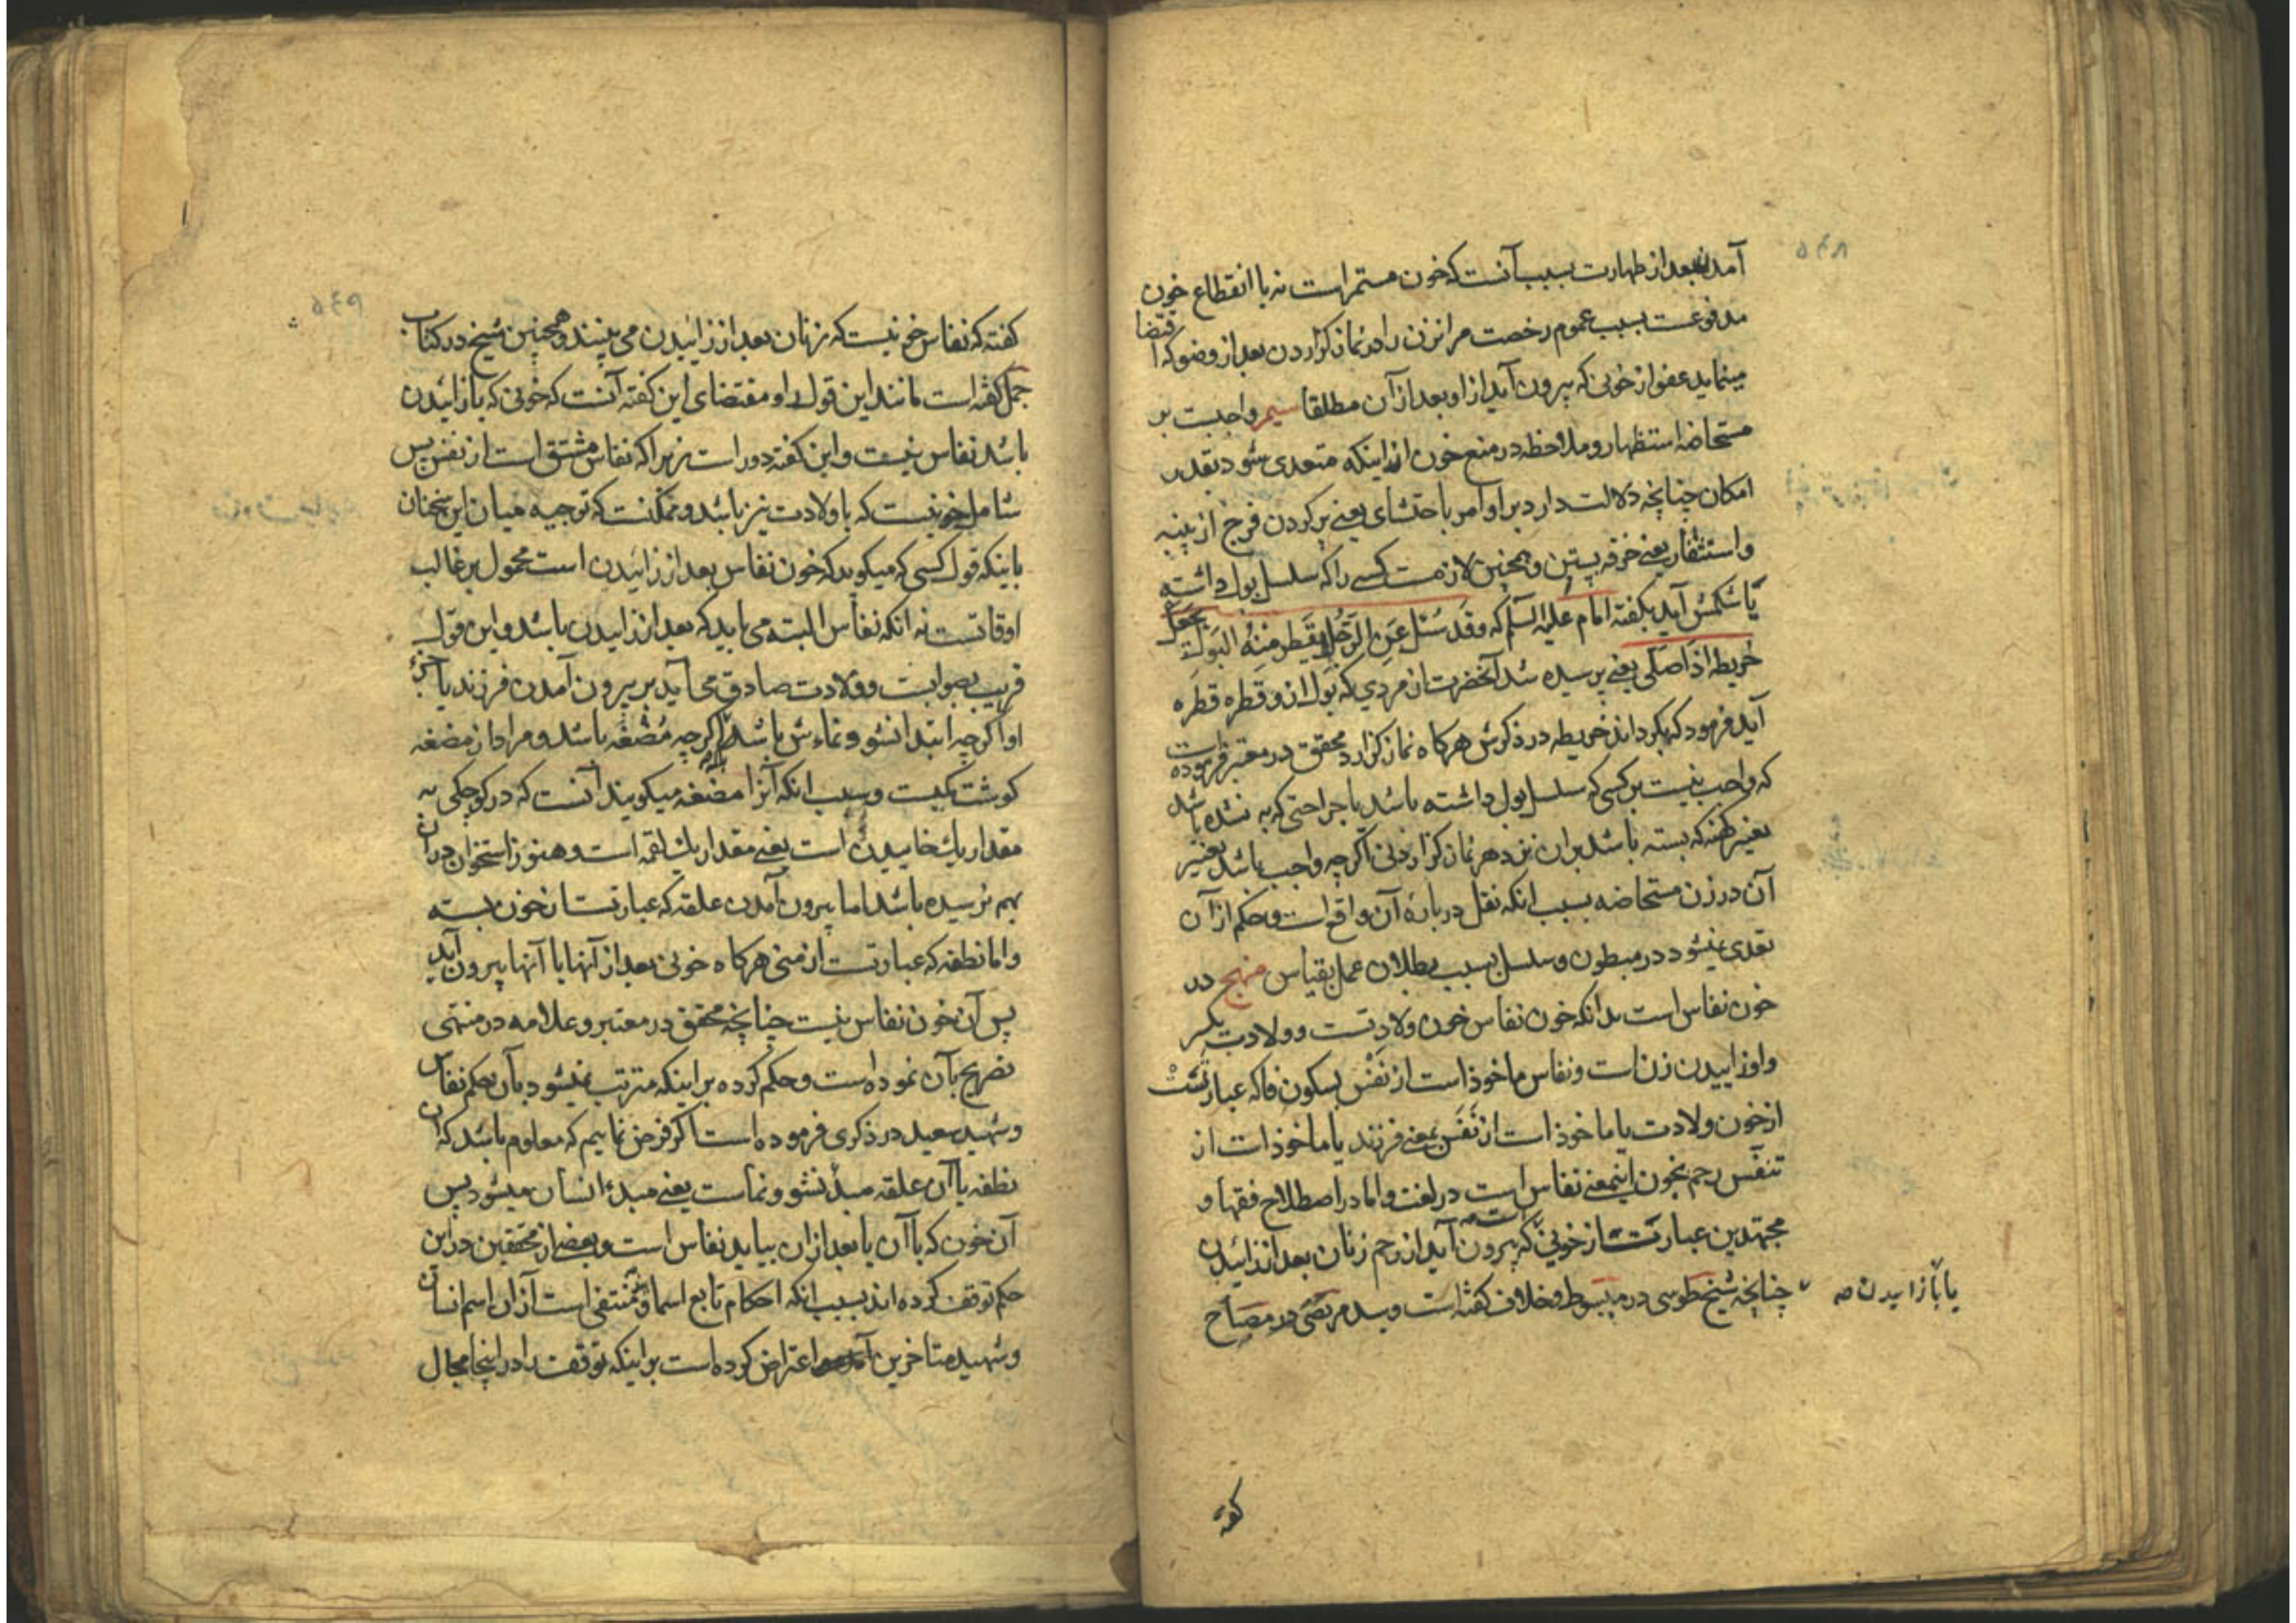 آمدن بعد از طهارت بسبب آنست که خون مستمر است نه با انقطاع خون
مدفوعست بسبب عموم رخصت مر انزن را در نماز کزاردن بعد از وضو که اقتضا
مینماید عفو از خونی که بیرون آید از او بعد از آن مطلقا سیم واجبست بر
مستحاضه استظهار و ملاحظه در منع خون از اینکه متعدی شود بقدر
امکان چنانچه دلالت دارد بر او امر باحتشای یعنی پر کردن فرج از پنبه
و استثفار یعنی خرقه بستن و همچنین لازمست کسی را که سلسل بول داشته
یا شکمش آید بکفته امام علیه السلم که و قد سئل عن الرجل یقطر منه البول قال یجعل
خریطه اذا صلی یعنی پرسیده شد آنحضرت از مردی که بول از و قطره قطره
آید فرمود که بکرداند خریطه در ذکرش هرکاه نماز کزارد محقق در معتبر فرموده است
که واجب نیست بر کسی که سلسل بول داشته باشد یا جراحتی که به نشده باشد
تغییر کهنه که بسته باشد بران نزد هر نماز کزاردنی اکرچه واجب باشد تغییر
آن در زن مستحاضه بسبب انکه نقل در بارهٔ آن واقع است و حکم از آن
تعدی نمیشود در مبطون و سلسل بسبب بطلان عمل بقیاس منهج در
خون نفاس است بدانکه خون نفاس خون ولادتست و ولادت بکسر
واو زاییدن زن است و نفاس ماخوذ است از نفس بسکون فا که عبارتست
از خون ولادت یا ماخوذ است از نفس بمعنی فرزند یا ماخوذ است از
تنفس رحم بخون اینمعنی نفاس است در لغت و اما در اصطلاح فقها و
مجتهدین عبارتست از خونی که بیرون آید از رحم زنان بعد از زائیدن
چنانچه شیخ طوسی در مبسوط و خلاف کفته است و سید مرتضی در مصباح
یا با زاییدن صه
کفته
کفته که نفاس خونیست که زنان بعد از زائیدن می بینند و همچنین شیخ در کتاب
جمل کفته است مانند این قول او مقتضای این کفته آنست که خونی که با زائیدن
باشد نفاس نیست و این کفته دور است زیرا که نفاس مشتق است از نفس پس
شامل خونیست که با ولادت نیز باشد و ممکنست که توجیه میان این سخنان
باینکه قول کسی که میکوید که خون نفاس بعد از زائیدن است محمول بر غالب
اوقاتست نه انکه نفاس البته می باید که بعد از زاییدن باشد و این قول
قریب بصوابست و ولادت صادق می آید بر بیرون آمدن فرزند یا جزء
او اکرچه ابتدا نشو و نماءش باشد اکرچه مضغه باشد و مراد از مضغه
کوشت کیست و سبب انکه آنرا مضغه میکویند آنست که در کوچکی به
مقدار یك خاییدن است یعنی مقدار یك لقمه است و هنوز استخوان در آن
بهم نرسیده باشد اما بیرون آمدن علقه که عبارتست از خون بسته
و اما نطفه که عبارتست از منی هرکاه خونی بعد از آنها یا با آنها بیرون آید
پس آن خون نفاس نیست چنانچه محقق در معتبر و علامه در منتهی
تصریح بآن نموده است و حکم کرده بر اینکه مترتب نمیشود بآن حکم نفاس
و شهید سعید در ذکری فرموده است اکر فرض نماییم که معلوم باشد که آن
نطفه یا آن علقه مبدٔ نشو و نماست یعنی مبدء انسان میشود پس
آن خون که با آن یا بعد از ان بیاید نفاس است و بعضی از محققین در این
حکم توقف کرده اند بسبب انکه احکام تابع اسما و منتفی است از ان اسم انسان
و شهید متاخرین اعتراض کرده است بر اینکه توقف را در اینجا مجال